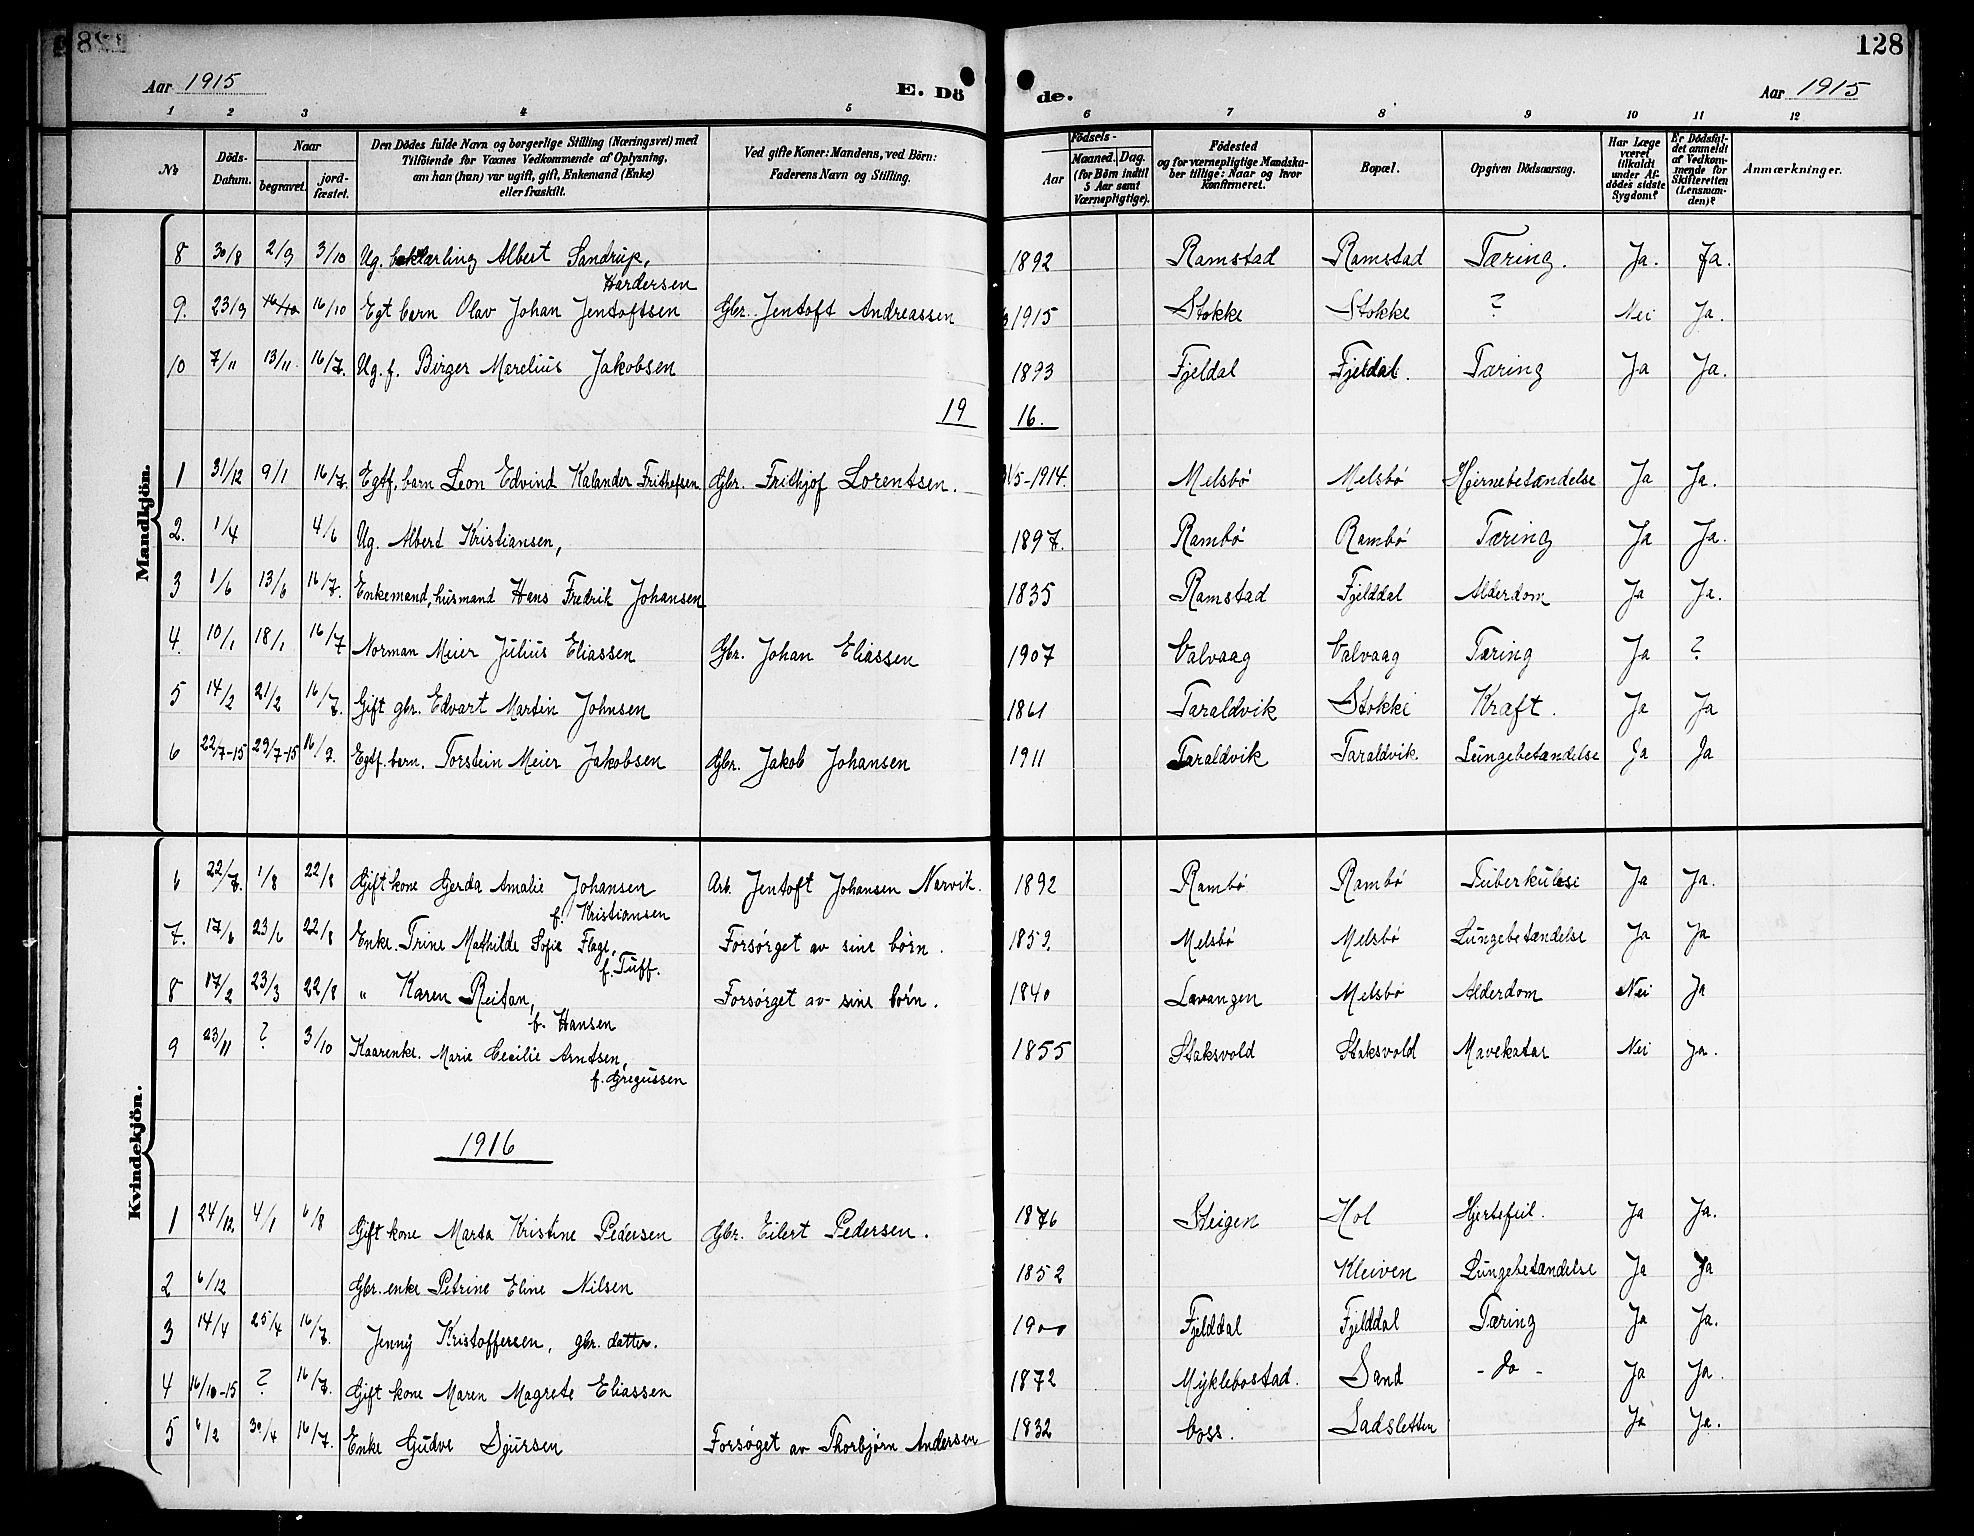 128
Aar 1915
E. Dö
de.
Aar 1915
1 2 3 4 5 6 7 8 9 10 11 12
No
Döds-Datum.
Naar
begravet.
jord-fæstet.
Den Dödes fulde Navn og borgerlige Stilling (Næringsvei) med
Tilföiende for Voxnes Vedkommende af Oplysning,
om han (hun) var ugift, gift, Enkemand (Enke)
eller fraskilt.
Ved gifte Koner: Mandens, ved Börn:
Faderens Navn og Stilling.
Födsels-
Aar
Maaned. Dag.
(for Börn indtil
5 Aar samt
Værnepligtige).
Födested
og for værnepligtige Mandska-
ber tillige: Naar og hvor
konfirmeret.
Bopæl.
Opgiven Dödsaarsag.
Har Læge
været
tilkaldt
under Af-
dödes sidste
Sygdom?
Er Dödsfal-
det anmeldt
af Vedkom-
mende for
Skifteretten
(Lensman-
den)?
Anmærkninger.
Mandkjön.
8 30/8 2/9 3/10 Ug. Albert Sandrup, 1892 Ramstad Ramstad Tæring. Ja. Ja.
Hardersen
9. 23/9 16/10 16/10 Egt barn Olav Johan Jentoftsen Gbr. Jentoft Andreassen 1915 Stokke Stokke ? Nei Ja.
10 7/11 13/11 16/7. Ug. f. Birger Marelius Jakobsen 1893 Fjeldal Fjeldal. Tæring Ja Ja.
19 16.
1 31/12 9/1 16/7. Egtf. barn Leon Edvind Kalander Frithefsen Gbr. Frithjof Lorentsen. 31/5-1914. Melsbø Melsbø Hjernebetændelse Ja Ja.
2. 1/4 4/6 Ug. Albert Kristiansen, 1897. Rambø Rambø Tæring Ja Ja.
3 1/6 13/6 16/7. Enkemand, husmand Hans Fredrik Johansen 1835 Ramstad Fjelddal Alderdom Ja Ja.
4. 10/1 18/1 16/7 Norman Meier Julius Eliassen Gbr. Johan Eliassen 1907 Valvaag Valvaag Tæring Ja ?
5 14/2 21/2 16/7. Gift gbr. Edvart Martin Johnsen 1861 Taraldvik Stokke Kræft. Ja Ja
6 22/7-15 29/7-15 16/7. Egtf. barn. Torstein Meier Jakobsen Gbr. Jakob Johansen 1911 Taraldvik Taraldvik. Lungebetændelse Ja Ja
Kvindekjön.
6 22/7. 1/8 22/8 Gift kone Gerda Amalie Johansen Arb. Jentoft Johansen Narvik. 1892 Rambø Rambø Tuberkulose Ja Ja.
f. Kristiansen
7. 17/6 23/6 22/8 Enke. Trine Mathilde Sofie Flage, Forsørget av sine børn. 1859. Melsbø Melsbø Lungebetændelse Ja Ja
f. Tuff.
8 17/2 23/3 22/8 " Karen Reitan, Forsørget av sine børn. 1840 Lavangen Melsbø Alderdom Nei Ja
f. Hansen
9 23/11 ? 3/10 Kaarenke. Marie Cecilie Arntsen, 1855 Staksvold Staksvold Mavekatar Nei Ja.
f. Gregussen
1916
1 24/12. 4/1 6/8 Gift kone Marta Kristine Pedersen Gbr. Eilert Pedersen. 1876 Steigen Hol Hjertefeil. Ja Ja.
2 6/12 Gbr. enke Petrine Eline Nilsen 1852 Kleiven Lungebetændelse Ja Ja
3 14/4 25/4 16/7. Jenny Kristoffersen, gbr. datter. 1900 Fjelddal Fjelddal Tæring Ja Ja.
4 16/10-15 ? 16/7. Gift kone Maren Magrete Eliassen 1872 Myklebostad. Sand - do - Ja Ja.
5 6/2 30/4 16/7. Enke Gudve Sjursen Forsøget av Thorbjørn Andersen 1832 Voss. Ladsletten Ja Ja.